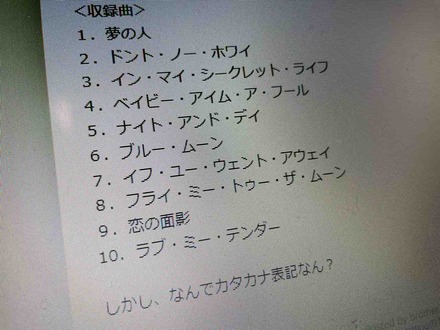 ＜収録曲＞
1．夢の人
2．ドント・ノー・ホワイ
3．イン・マイ・シークレット・ライフ
4．ベイビー・アイム・ア・フール
5．ナイト・アンド・デイ
6．ブルー・ムーン
7．イフ・ユー・ウェント・アウェイ
8．フライ・ミー・トゥー・ザ・ムーン
9．恋の面影
10．ラブ・ミー・テンダー
しかし、なんでカタカナ表記なん？